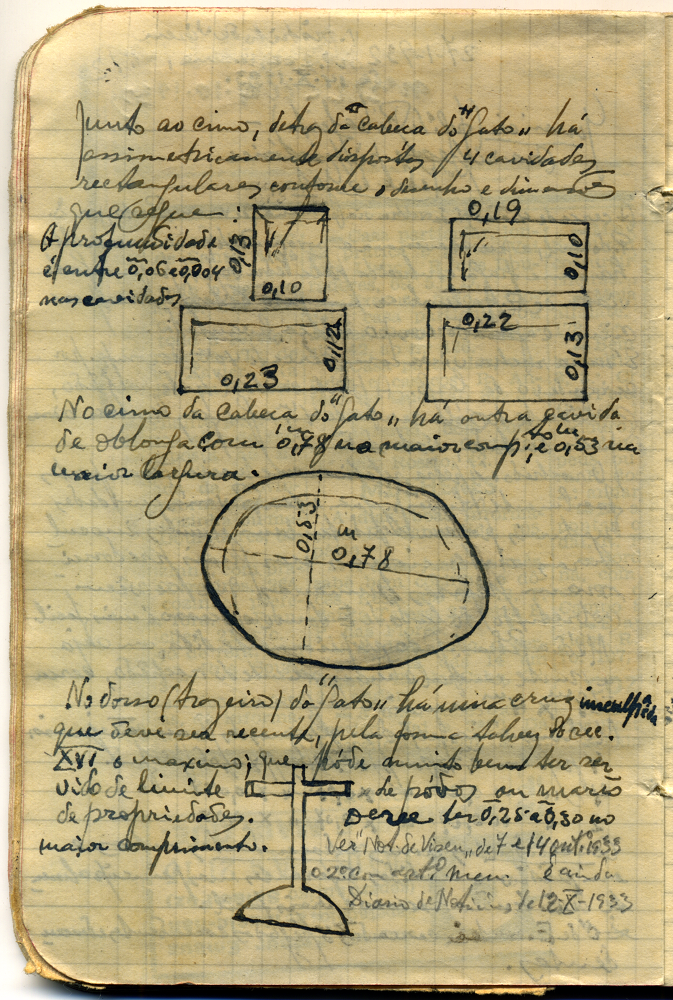 Junto ao cimo, detraz da cabeça do "Gato" há
assimetricamente dispostas 4 cavidades
rectangulares conforme o desenho e dimensões
que segue:
A profundidade
é entre 0,06 e 0,004
nas cavidades
0,13
0,10
0,19
0,10
0,23
0,12
0,22
0,13
No cimo da cabeça do "Gato" há outra cavida
de oblonga com 0,78 m na maior comp.to e 0,53 m na
maior largura.
0,53
m
0,78
No dorso (trazeiro) do "Gato" há uma cruz insculpida
que deve ser recente, pela forma talvez do sec.
XVI o maximo; que póde muito bem ter ser
vido de limite de pódos ou
de propriedades.
Deree ter 0,25 a 0,30 no
maior comprimento.
Ver "Not. de Viseu" de 7 e 14 out. 1933
o 2º com art.º meu e ainda
Diario de Noticias de 12-X-1933